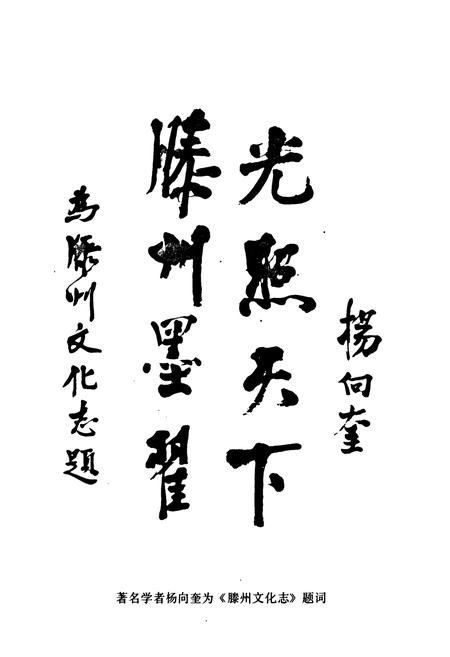 為滕州文化志題
滕州墨翟
光照天下
楊向奎
著名学者杨向奎为《滕州文化志》题词